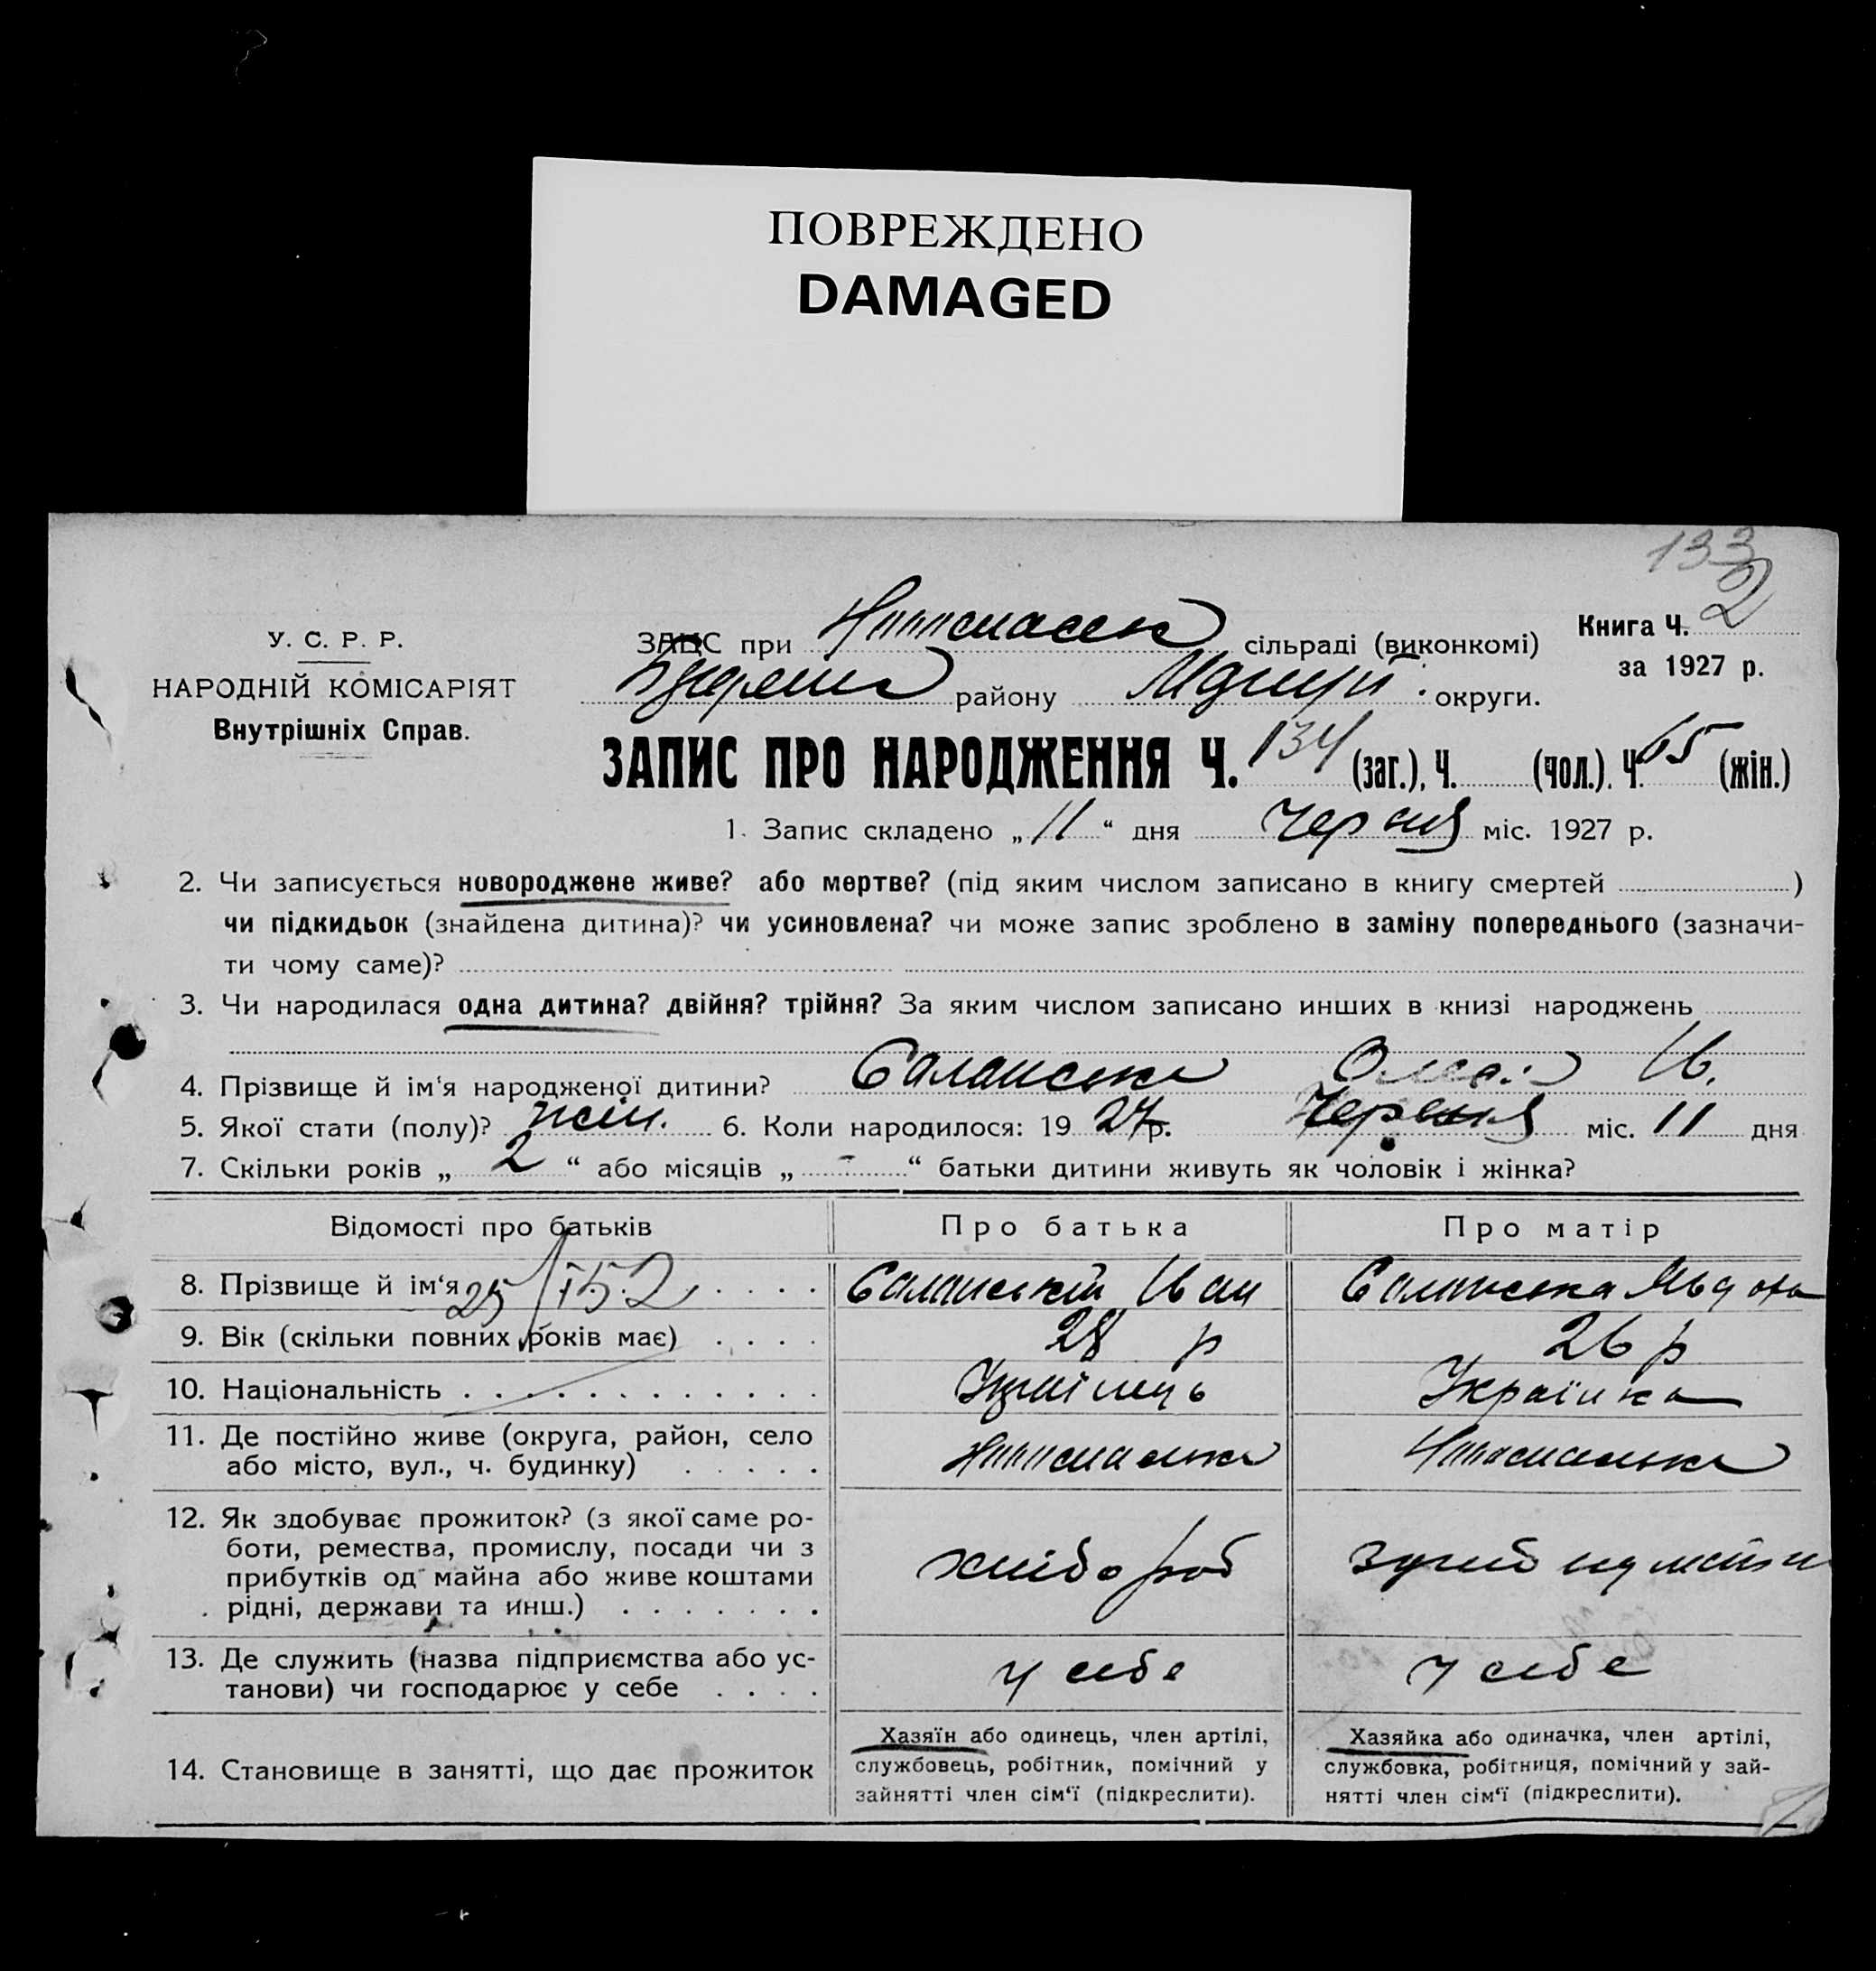 ПОВРЕЖДЕНО
DAMAGED
133
2
У. С. Р. Р.
НАРОДНІЙ КОМІСАРІЯТ
Внутрішніх Справ.
ЗАЦС при сільраді (виконкомі)
району округи.
Книга Ч.
за 1927 р.
ЗАПИС ПРО НАРОДЖЕННЯ Ч. 134 (заг.), Ч. (чол.). Ч. 65 (жін.)
1. Запис складено „ 11 “ дня Червня міс. 1927 р.
2. Чи записується новороджене живе? або мертве? (під яким числом записано в книгу смертей )
чи підкидьок (знайдена дитина)? чи усиновлена? чи може запис зроблено в заміну попереднього (зазначи-
ти чому саме)?
3. Чи народилася одна дитина? двійня? трійня? За яким числом записано инших в книзі народжень
4. Прізвище й ім‘я народженої дитини? Саланська Ів.
5. Якої стати (полу)? жін. 6. Коли народилося: 19 27 р. Червня міс. 11 дня
7. Скільки років „ 2 “ або місяців „ - “ батьки дитини живуть як чоловік і жінка?
Відомості про батьків Про батька Про матір
8. Прізвище й ім‘я . . . . Саланській Іван Саланська Явдоха
25/I 52
9. Вік (скільки повних років має) . . . . 28 р 26 р
10. Національність . . . . . . . . . . . . . Українець Українка
11. Де постійно живе (округа, район, село
або місто, вул., ч. будинку) . . . . .
12. Як здобуває прожиток? (з якої саме ро-
боти, ремества, промислу, посади чи з
прибутків од майна або живе коштами
рідні, держави та инш.) . . . . . . . хлібороб
13. Де служить (назва підприємства або ус-
танови) чи господарює у себе . . . . у себе у себе
14. Становище в занятті, що дає прожиток
Хазяїн або одинець, член артілі,
службовець, робітник, помічний у
зайнятті член сім‘ї (підкреслити).
Хазяйка або одиначка, член артілі,
службовка, робітниця, помічний у зай-
нятті член сім‘ї (підкреслити).